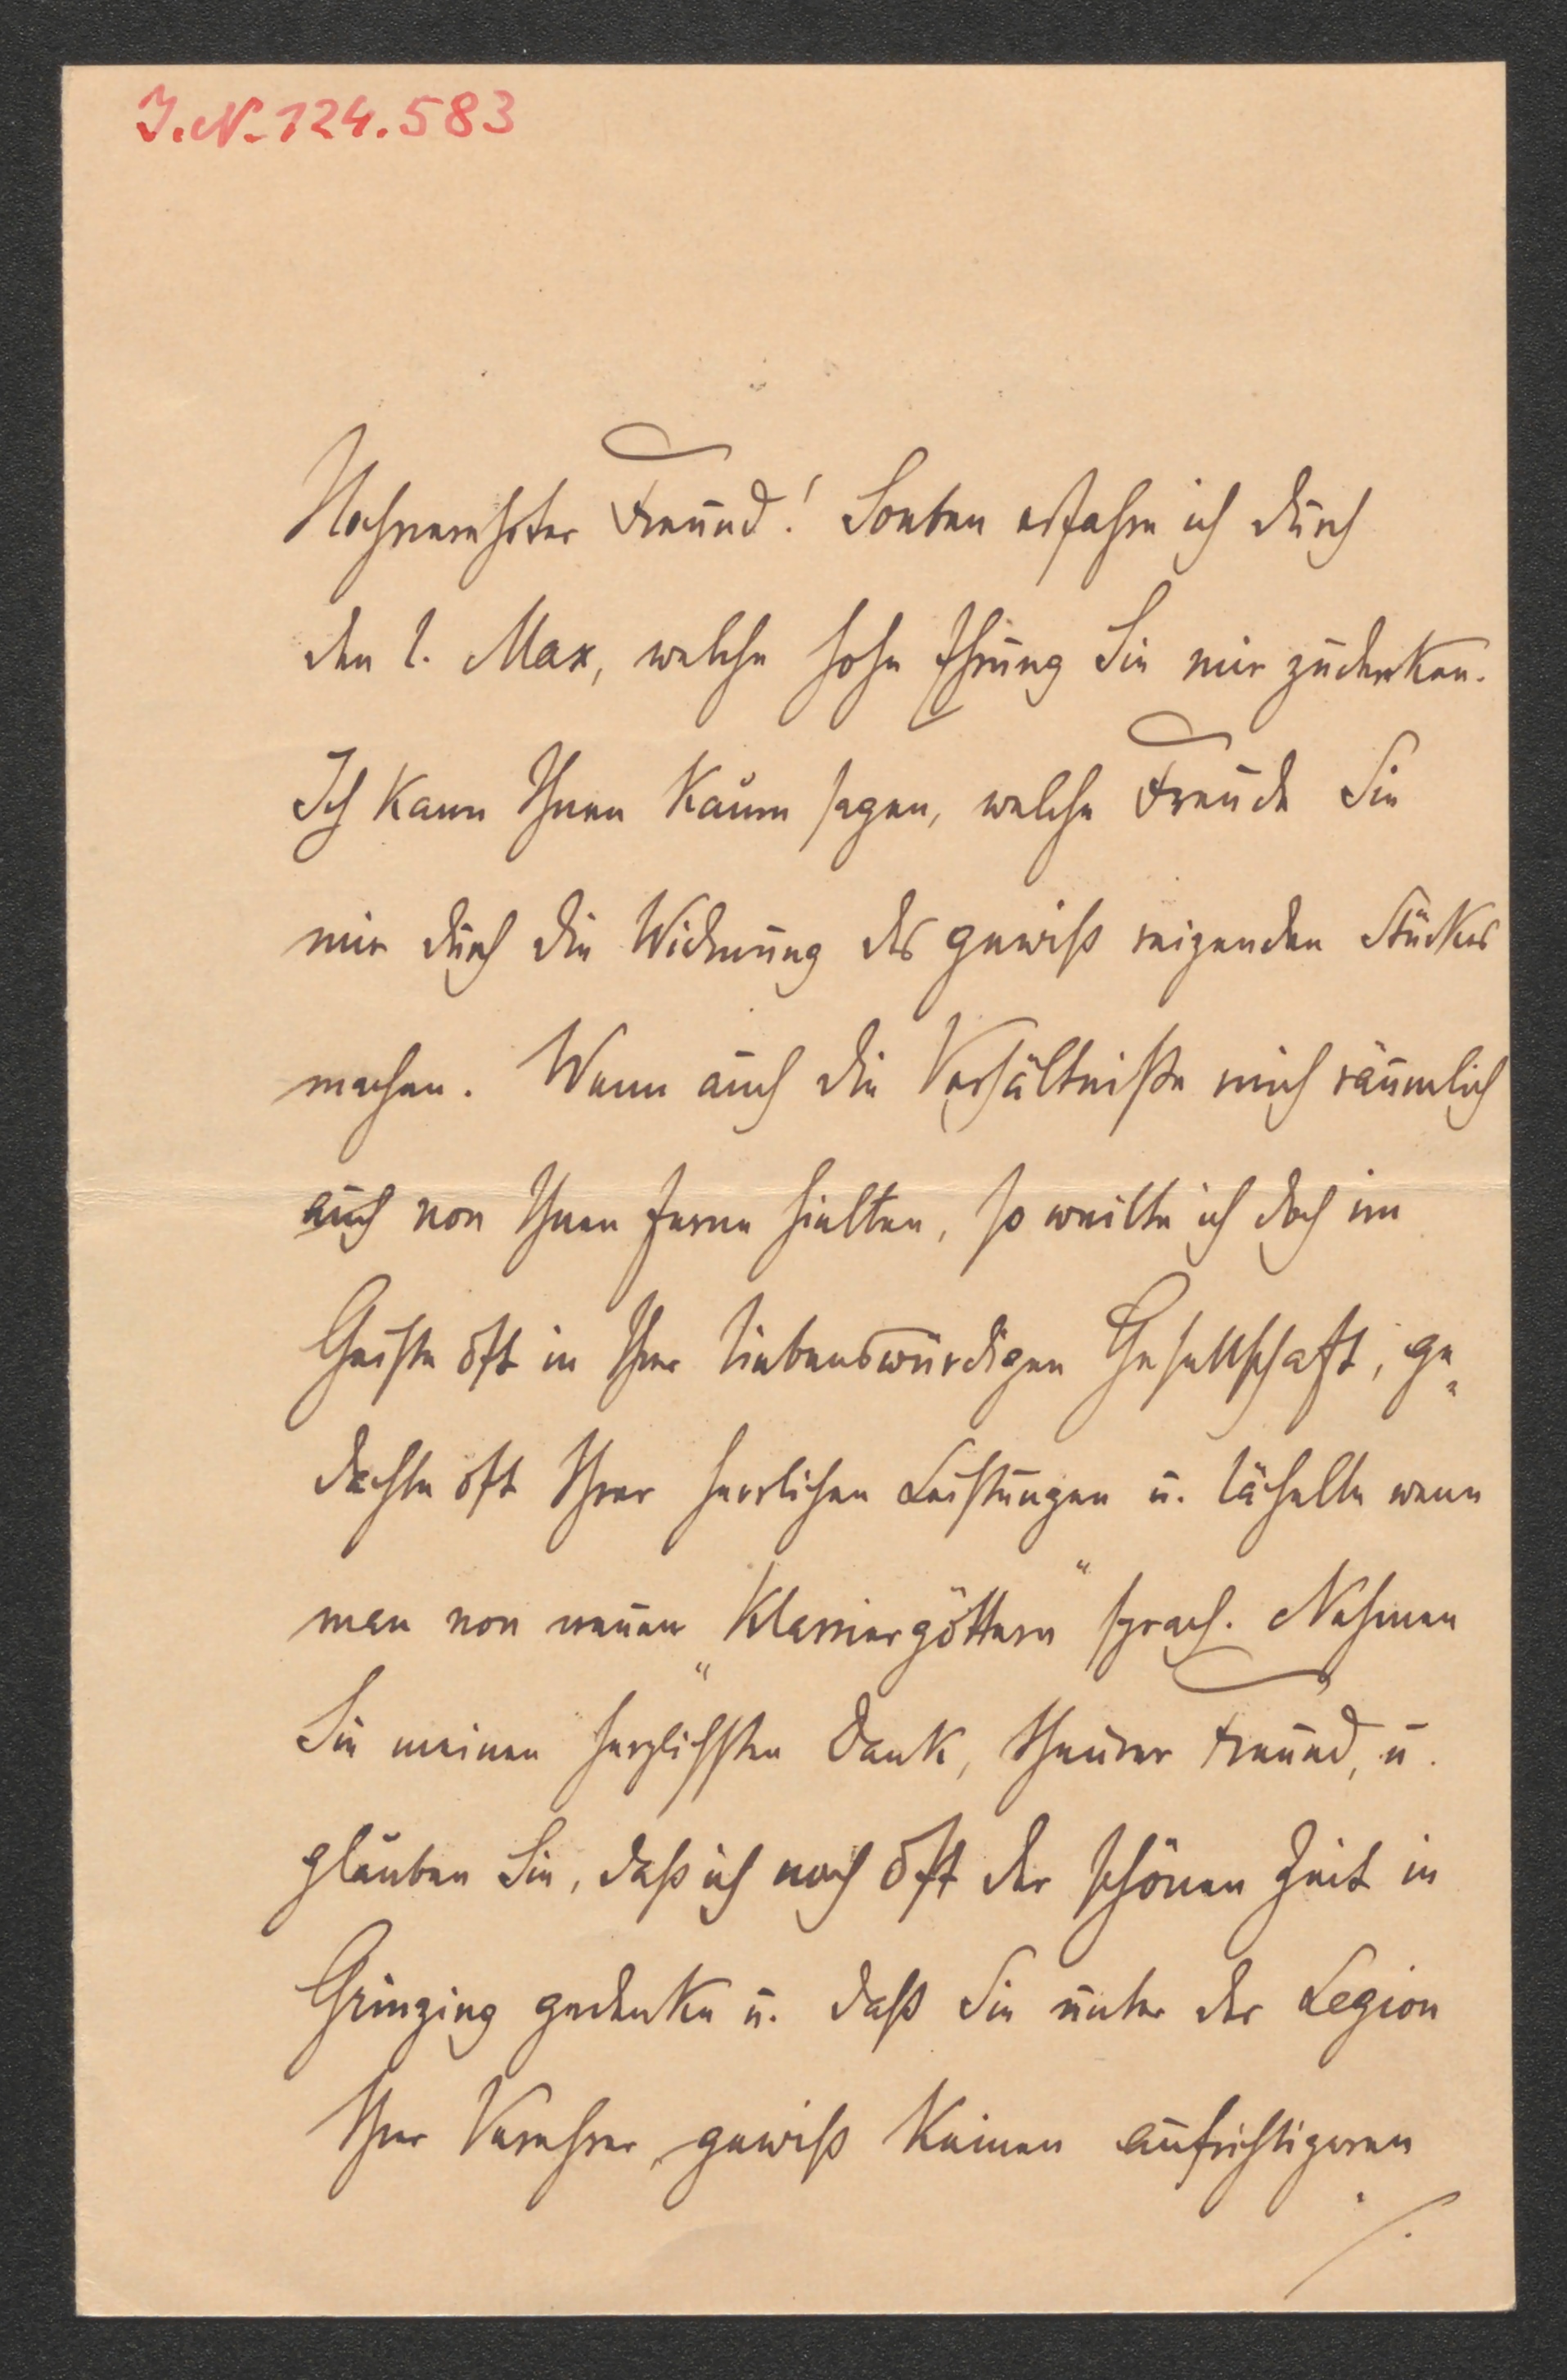 I.N. 124.583
Hochverehrter Freund! Soeben erfahre ich durch
den l. Max, welche hohe Ehrung Sie mir zudenken.
Ich kann Ihnen kaum sagen, welche Freude Sie
mir durch die Widmung des gewiß reizenden Stückes
machen. Wenn auch die Verhältniße mich räumlich
auch von Ihnen ferne hielten, so weilte ich doch im
Geiste oft in Ihrer liebenswürdigen Gesellschaft, ge„
dachte oft Ihrer herrlichen Leistungen u. lächelte wenn
man von neuen „Klaviergöttern“ sprach. Nehmen
Sie meinen herzlichsten Dank, theurer Freund, u.
glauben Sie, daß ich noch oft der schönen Zeit in
Grinzing gedenke u. daß Sie unter der Legion
Ihrer Verehrer gewiß keinen aufrichtigeren
./.